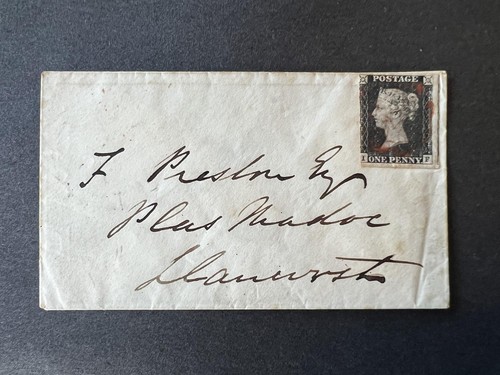 POSTAGE
ONE PENNY
I F
F Preston Esq
Plas Madoc
Llanrwst